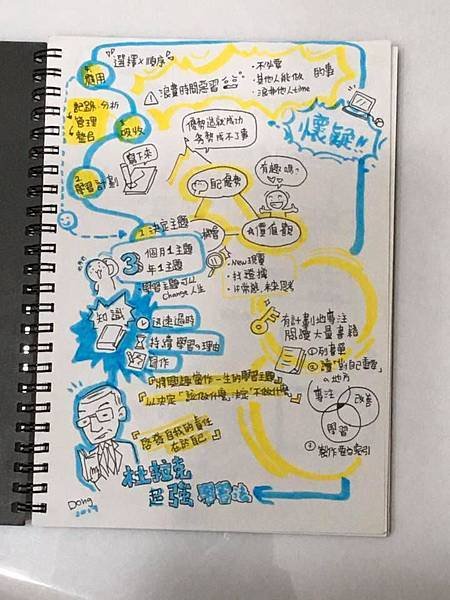 杜拉克
超強學習法
Dong
知識
快速過時
持續學習的理由
寫作
3
個月1主題
年1主題
學習主題可以
change人生
1. 決定主題
2. 學習計劃
寫下來
3. 吸收
記錄.分析
管理
整合
4. 應用
選擇×順序
浪費時間惡習
・不必要
・其他人能做
・浪費他人time
的事
懷疑!!
優勢造就成功
劣勢成不了事
配優勢
有趣嗎?
機會
價值觀
・New現實
・找選擇
有計劃地專注
閱讀大量書籍
①列書單
②讀「對自己重要」
的地方
專注
改善
學習
「將興趣當作一生的學習主題」
以決定「該做什麼」決定「不做什麼」
「啓發自我的責任
在於自己」